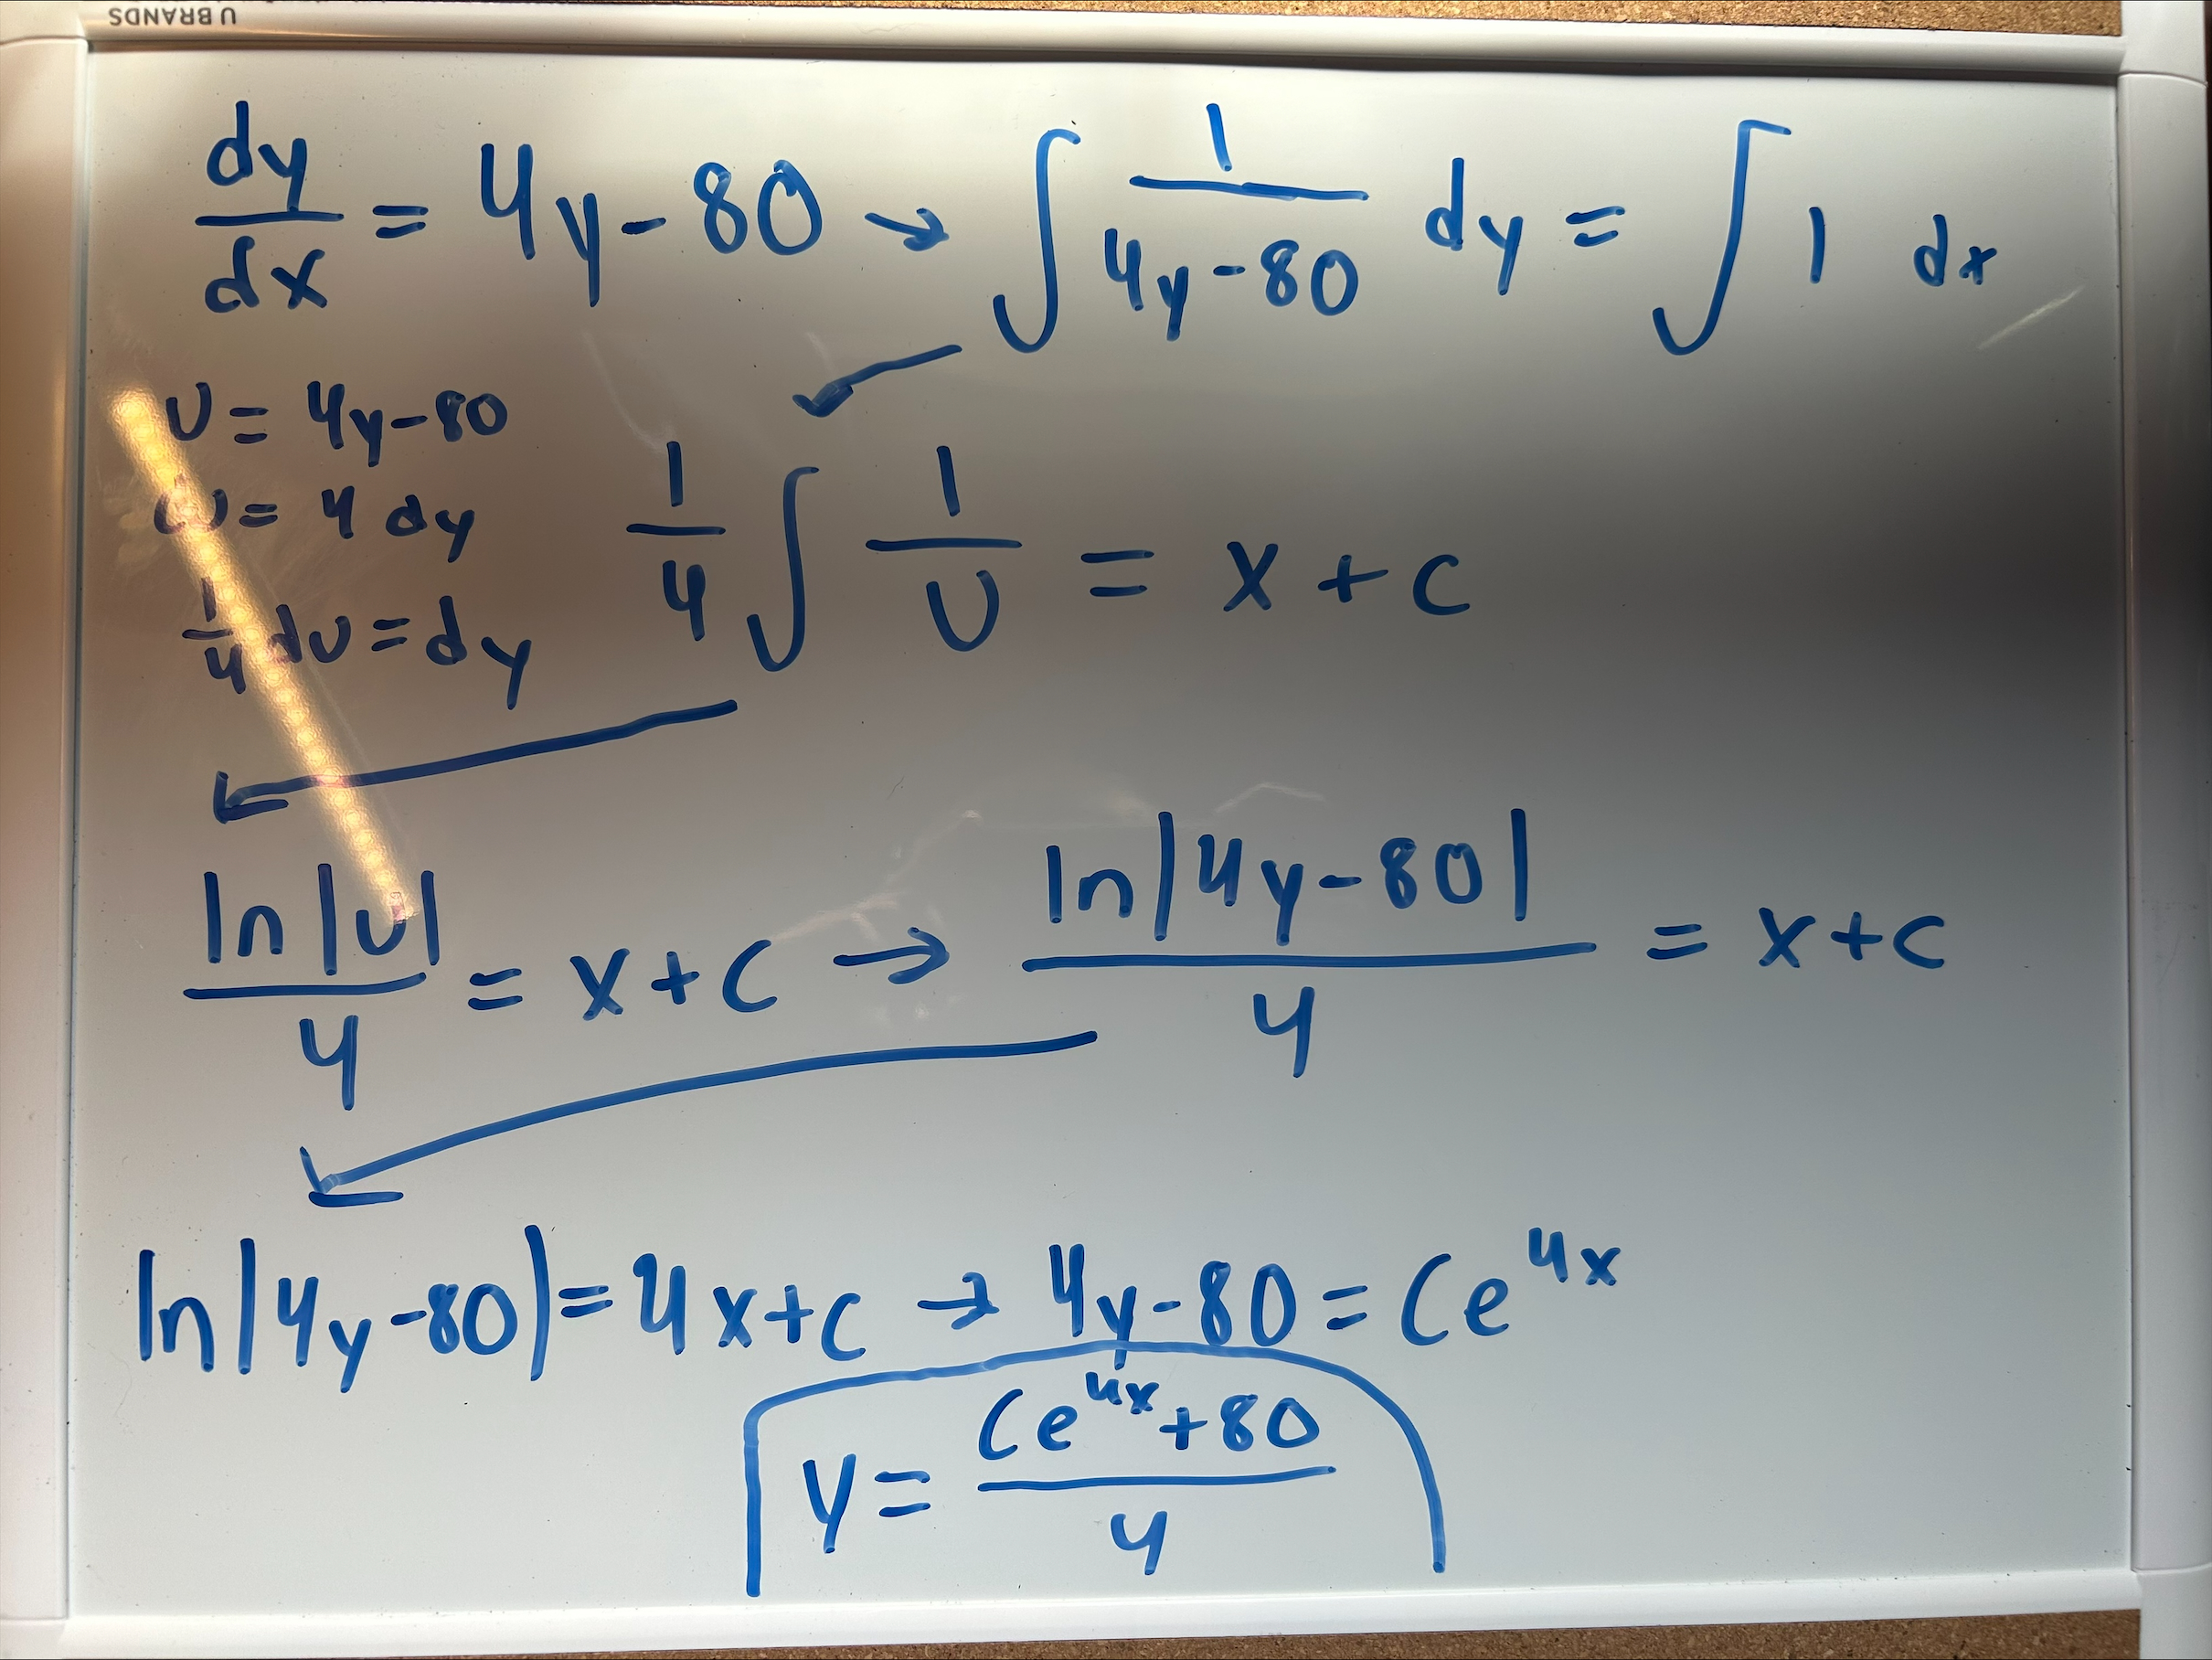 U BRANDS
dy/dx = 4y-80 → ∫ 1/(4y-80) dy = ∫ 1 dx
U = 4y-80
= 4 dy
1/4 ∫ 1/U = x + c
1/4 dU = dy
ln|U|/4 = x+c → ln|4y-80|/4 = x+c
ln|4y-80| = 4x+c → 4y-80 = Ce^4x
y = (Ce^4x+80)/4